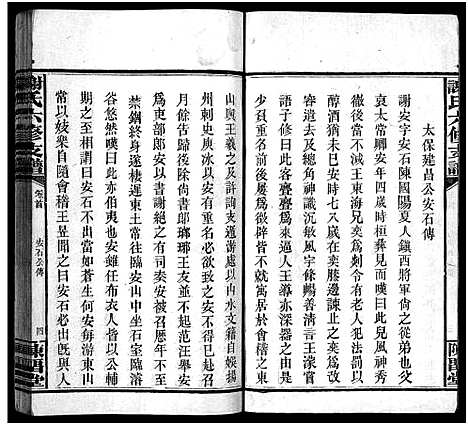 謝氏六修支譜
太保建昌公安石傳
謝安字安石陳國陽夏人鎮西將軍尚之從弟也父
裒太常卿安年四歲時桓彝見而嘆曰此兒風神秀
徹當繼蹤王東海兄奕爲剡令有老人犯法奕以
醇酒猶未已安時七八歲在奕膝邊諫止之奕爲改
語子修曰此客亹亹爲來逼人王導亦深器之由
是少有重名
及總角神識沉敏風宇條暢善
寓居於會稽之東
山與王羲之及許詢支遁游處以山水文籍自娛揚
州刺史庾冰以安有重名
月餘告歸後除尚書郎瑯琊王友並不起范汪舉安
爲吏部郎安以書謝絕之有司奏安被召歷年不至
禁錮終身遂棲遲東土常往臨安山中坐石室臨濬
谷悠然嘆曰此亦伯夷也安雖任布衣人皆以公輔
期之至相謂曰安石不出當如蒼生何安每游東山
常以妓樂自隨會稽王昱聞之曰安石必出既與人
謝氏六修支譜
卷首
安石公傳
四
陳留堂